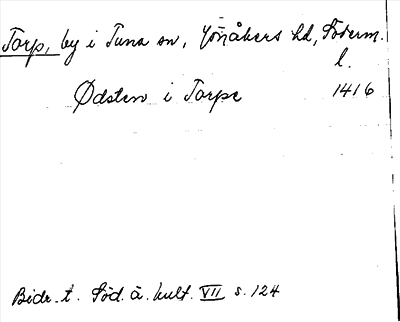 Torp, by i Tuna sn, Jönåkers hd, Söderm.
l.
Ödsten i Torpe 1416
Bidr. t. Söd. ä. kult. VII s. 124